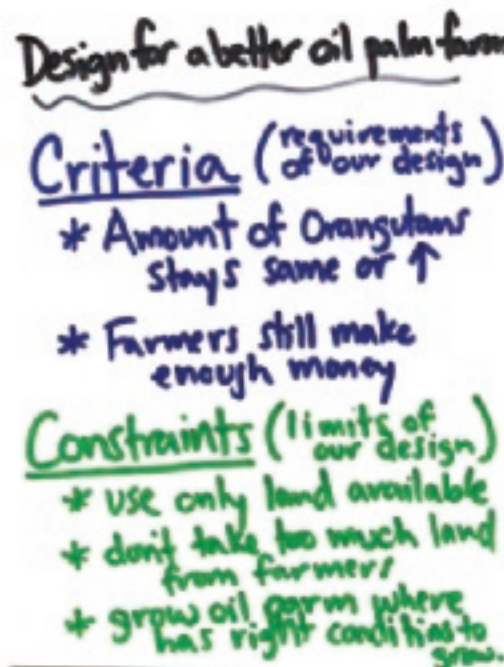 Design for a better oil palm farm
Criteria (requirements
of our design)
* Amount of Orangutans
stays same or ↑
* Farmers still make
enough money
Constraints (limits of
our design)
* use only land available
* don't take too much land
from farmers
* grow oil parm where
has right conditions to
grow.